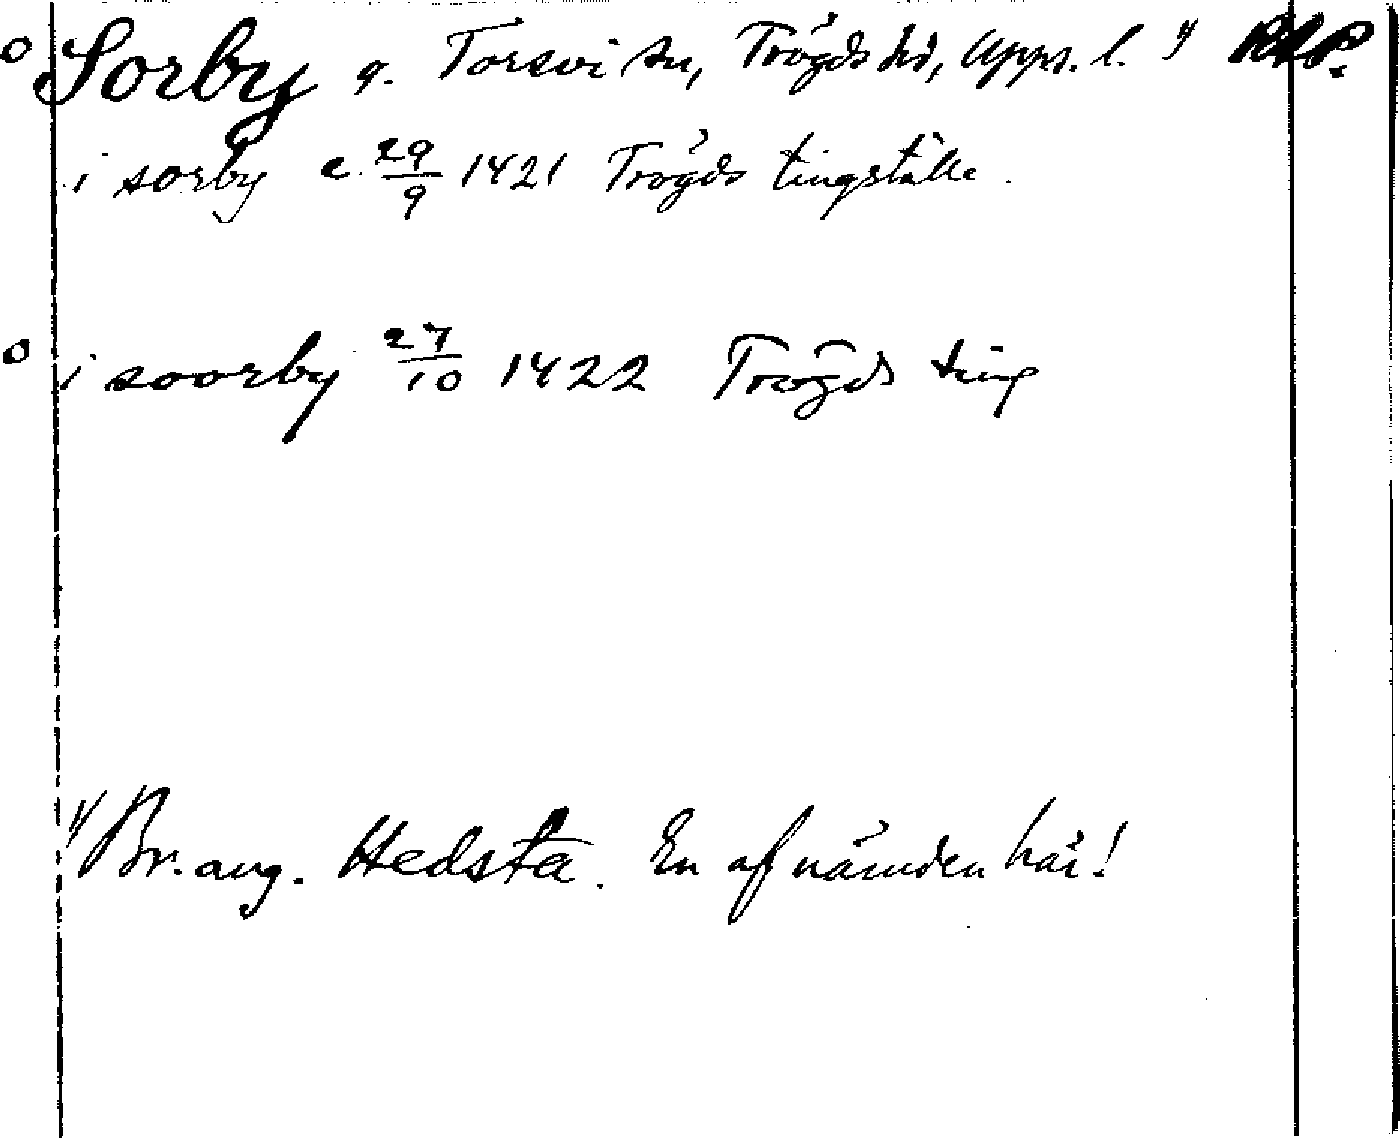 o Sorby g. Torsvi sn, Trögds hd, Upps. l. 1) RAP.
i sorby c. 29/9 1421 Trögds tingställe.
o i soorby 27/10 1422 Trögds ting
1) Br. ang. Hedsta. En af nämnden här!